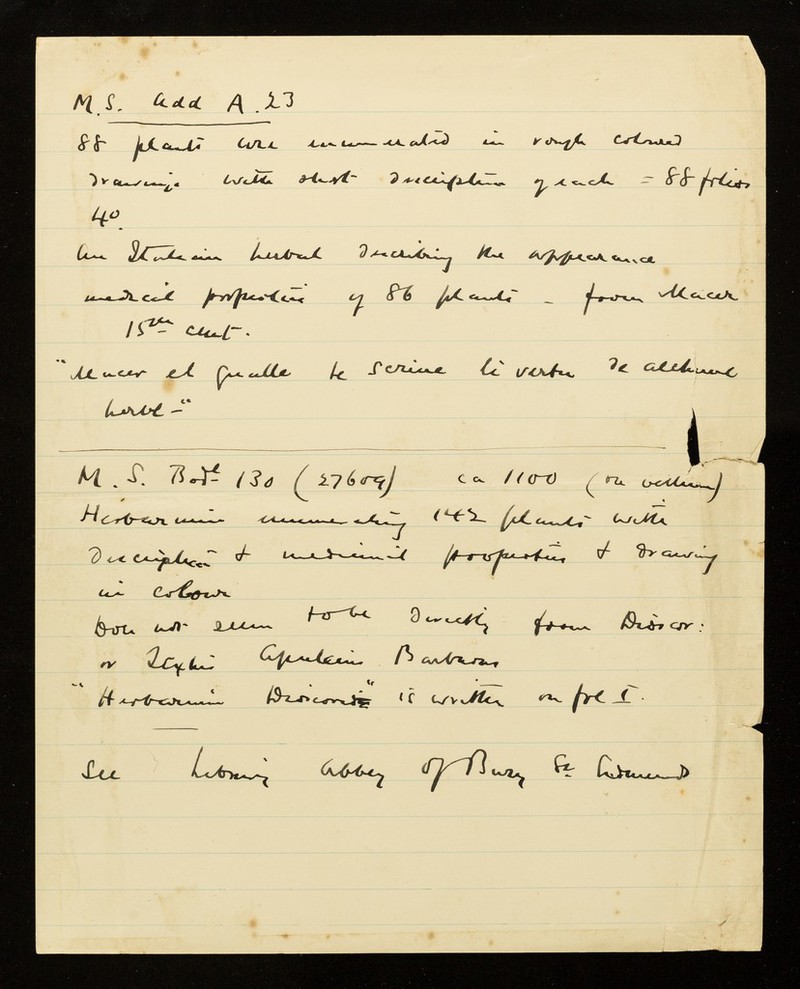 M.S. Add A.23
88 plants are enumerated in rough coloured
drawings with short description of each = 88 folios
4o.
An Italian herbal describing the appearance
medical properties of 86 plants - from Macer
15th cent.
"Macer el qualle te scrive li vertu de
herbe -"
M.S. Bodl 130 (27609) ca 1100 (on vellum)
Herbarium enumerating 142 plants with
Description & medicinal properties & drawing
in colour
Does not seem to be directly from Dioscor:
or Apuleius Barbarus
"Herbarium Dioscoridis" is written on fol I.
See Library Abbey of Bury St Edmunds